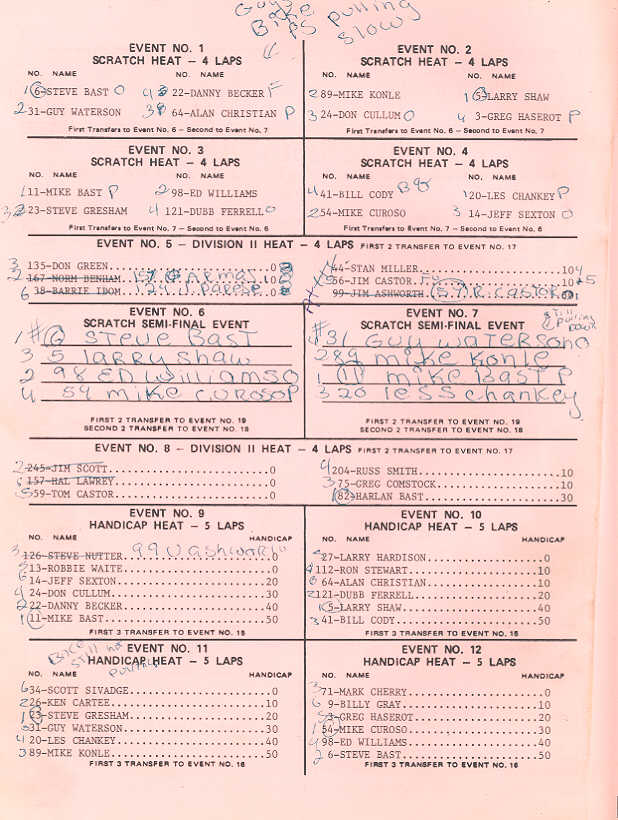 Guys
Bike
PS pulling
slow
EVENT NO. 1
SCRATCH HEAT – 4 LAPS
NO. NAME NO. NAME
1 6-STEVE BAST O 4 22-DANNY BECKER F
2 31-GUY WATERSON 3 64-ALAN CHRISTIAN P
First Transfers to Event No. 6 – Second to Event No. 7
EVENT NO. 2
SCRATCH HEAT – 4 LAPS
NO. NAME NO. NAME
2 89-MIKE KONLE 1 5-LARRY SHAW
3 24-DON CULLUM O 4 3-GREG HASEROT P
First Transfers to Event No. 6 – Second to Event No. 7
EVENT NO. 3
SCRATCH HEAT – 4 LAPS
NO. NAME NO. NAME
1 11-MIKE BAST P 2 98-ED WILLIAMS
3 23-STEVE GRESHAM 4 121-DUBB FERRELL O
First Transfers to Event No. 7 – Second to Event No. 6
EVENT NO. 4
SCRATCH HEAT – 4 LAPS
NO. NAME NO. NAME
4 41-BILL CODY 1 20-LES CHANKEY P
2 54-MIKE CUROSO 3 14-JEFF SEXTON O
First Transfers to Event No. 7 – Second to Event No. 6
EVENT NO. 5 – DIVISION II HEAT – 4 LAPS FIRST 2 TRANSFER TO EVENT NO. 17
3 135-DON GREEN 0
2 167-NORM BENHAM 0
6 38-BARRIE IBOM 0
44-STAN MILLER 10
56-JIM CASTOR
99-JIM ASHWORTH 57 R castor
EVENT NO. 6
SCRATCH SEMI-FINAL EVENT
1 #6 STEVE BAST
3 5 larry shaw
2 98 ED williamsO
4 54 mike curosoP
FIRST 2 TRANSFER TO EVENT NO. 19
SECOND 2 TRANSFER TO EVENT NO. 18
EVENT NO. 7
SCRATCH SEMI-FINAL EVENT
still pulling
#31 Guy watersonO
2 89 mike Konle
1 11 mike Bast P
3 20 less chankey
FIRST 2 TRANSFER TO EVENT NO. 19
SECOND 2 TRANSFER TO EVENT NO. 18
EVENT NO. 8 – DIVISION II HEAT – 4 LAPS FIRST 2 TRANSFER TO EVENT NO. 17
2 245-JIM SCOTT 0
157-HAL LAWREY 0
5 59-TOM CASTOR 0
4 204-RUSS SMITH 10
3 75-GREG COMSTOCK 10
1 82-HARLAN BAST 30
EVENT NO. 9
HANDICAP HEAT – 5 LAPS
NO. NAME HANDICAP
3 126-STEVE NUTTER 0 99 J ashworth
5 13-ROBBIE WAITE 0
6 14-JEFF SEXTON 20
4 24-DON CULLUM 30
2 22-DANNY BECKER 40
1 11-MIKE BAST 50
FIRST 3 TRANSFER TO EVENT NO. 15
EVENT NO. 10
HANDICAP HEAT – 5 LAPS
NO. NAME HANDICAP
27-LARRY HARDISON 0
4 112-RON STEWART 10
6 64-ALAN CHRISTIAN 10
2 121-DUBB FERRELL 20
1 5-LARRY SHAW 40
3 41-BILL CODY 50
FIRST 3 TRANSFER TO EVENT NO. 15
EVENT NO. 11
HANDICAP HEAT – 5 LAPS
NO. NAME HANDICAP
6 34-SCOTT SIVADGE 0
2 26-KEN CARTEE 10
1 23-STEVE GRESHAM 20
5 31-GUY WATERSON 30
4 20-LES CHANKEY 40
3 89-MIKE KONLE 50
FIRST 3 TRANSFER TO EVENT NO. 16
EVENT NO. 12
HANDICAP HEAT – 5 LAPS
NO. NAME HANDICAP
3 71-MARK CHERRY 0
6 9-BILLY GRAY 10
5 3-GREG HASEROT 20
1 54-MIKE CUROSO 30
4 98-ED WILLIAMS 40
2 6-STEVE BAST 50
FIRST 3 TRANSFER TO EVENT NO. 16